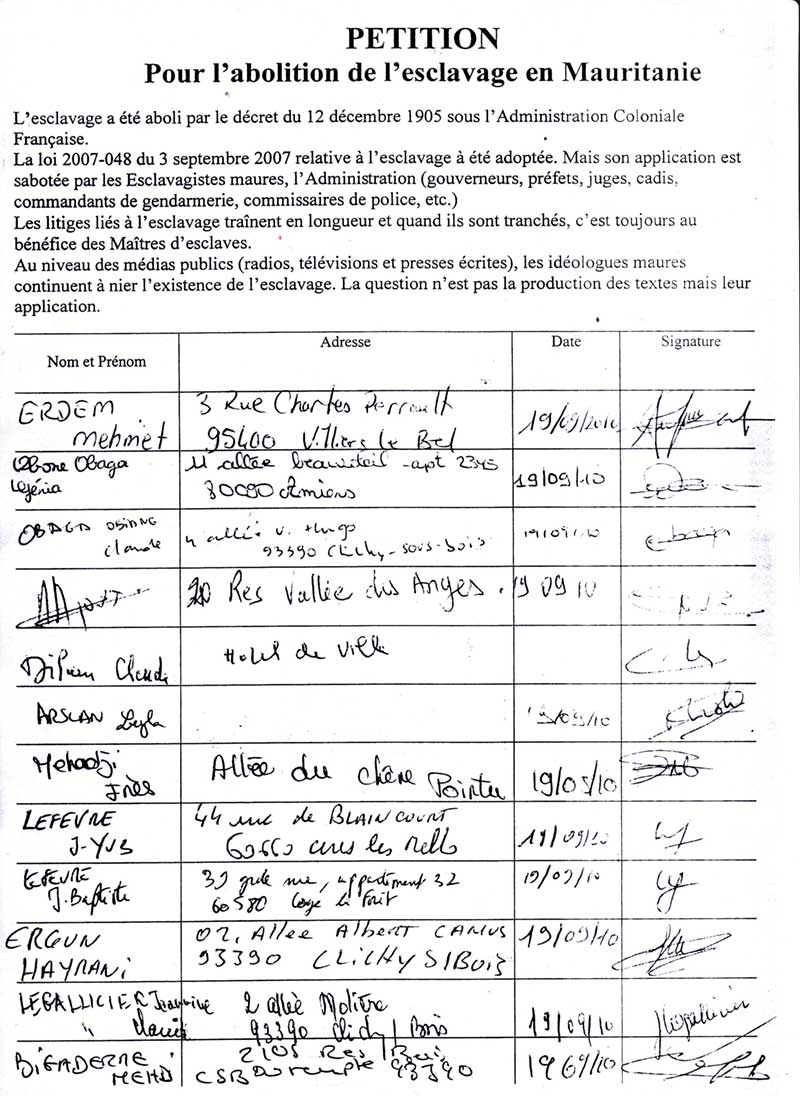 PETITION
Pour l'abolition de l'esclavage en Mauritanie
L'esclavage a été aboli par le décret du 12 décembre 1905 sous l'Administration Coloniale
Française.
La loi 2007-048 du 3 septembre 2007 relative à l'esclavage à été adoptée. Mais son application est
sabotée par les Esclavagistes maures, l'Administration (gouverneurs, préfets, juges, cadis,
commandants de gendarmerie, commissaires de police, etc.)
Les litiges liés à l'esclavage traînent en longueur et quand ils sont tranchés, c'est toujours au
bénéfice des Maîtres d'esclaves.
Au niveau des médias publics (radios, télévisions et presses écrites), les idéologues maures
continuent à nier l'existence de l'esclavage. La question n'est pas la production des textes mais leur
application.
Nom et Prénom Adresse Date Signature
ERDEM 3 Rue Charles Perrault 19/09/2010
Mehmet 95400 Villiers le Bel
Obone Obaga 11 allée apt 2343 19/09/10
80090 Amiens
OBAGA OBIANG allée V. Hugo 19/09/10
Claude 93390 CLichy-sous-bois
20 Res Vallée des Anges. 19 09 10
Dilain Claude Hotel de Ville
ARSLAN Leyla 19/09/10
Mehadji Allée du chêne Pointu 19/09/10
Inès
LEFEVRE 44 rue de BLAINCOURT 19/09/10
J-YVES 60660 cires les Mello
LEFEVRE 39 grde rue, appartement 32 19/09/10
J. Baptiste 60580 Coye la Forêt
ERGUN 02, Allee Albert CAMUS 19/09/10
HAYRANi 93390 CLiCHY S/BOiS
LEGALLICIER Jeannine 2 allée Molière
" 93390 Clichy / Bois 19/09/10
BiGADERNE 2105 Res 19 09/10
MEHDi CSB 93390